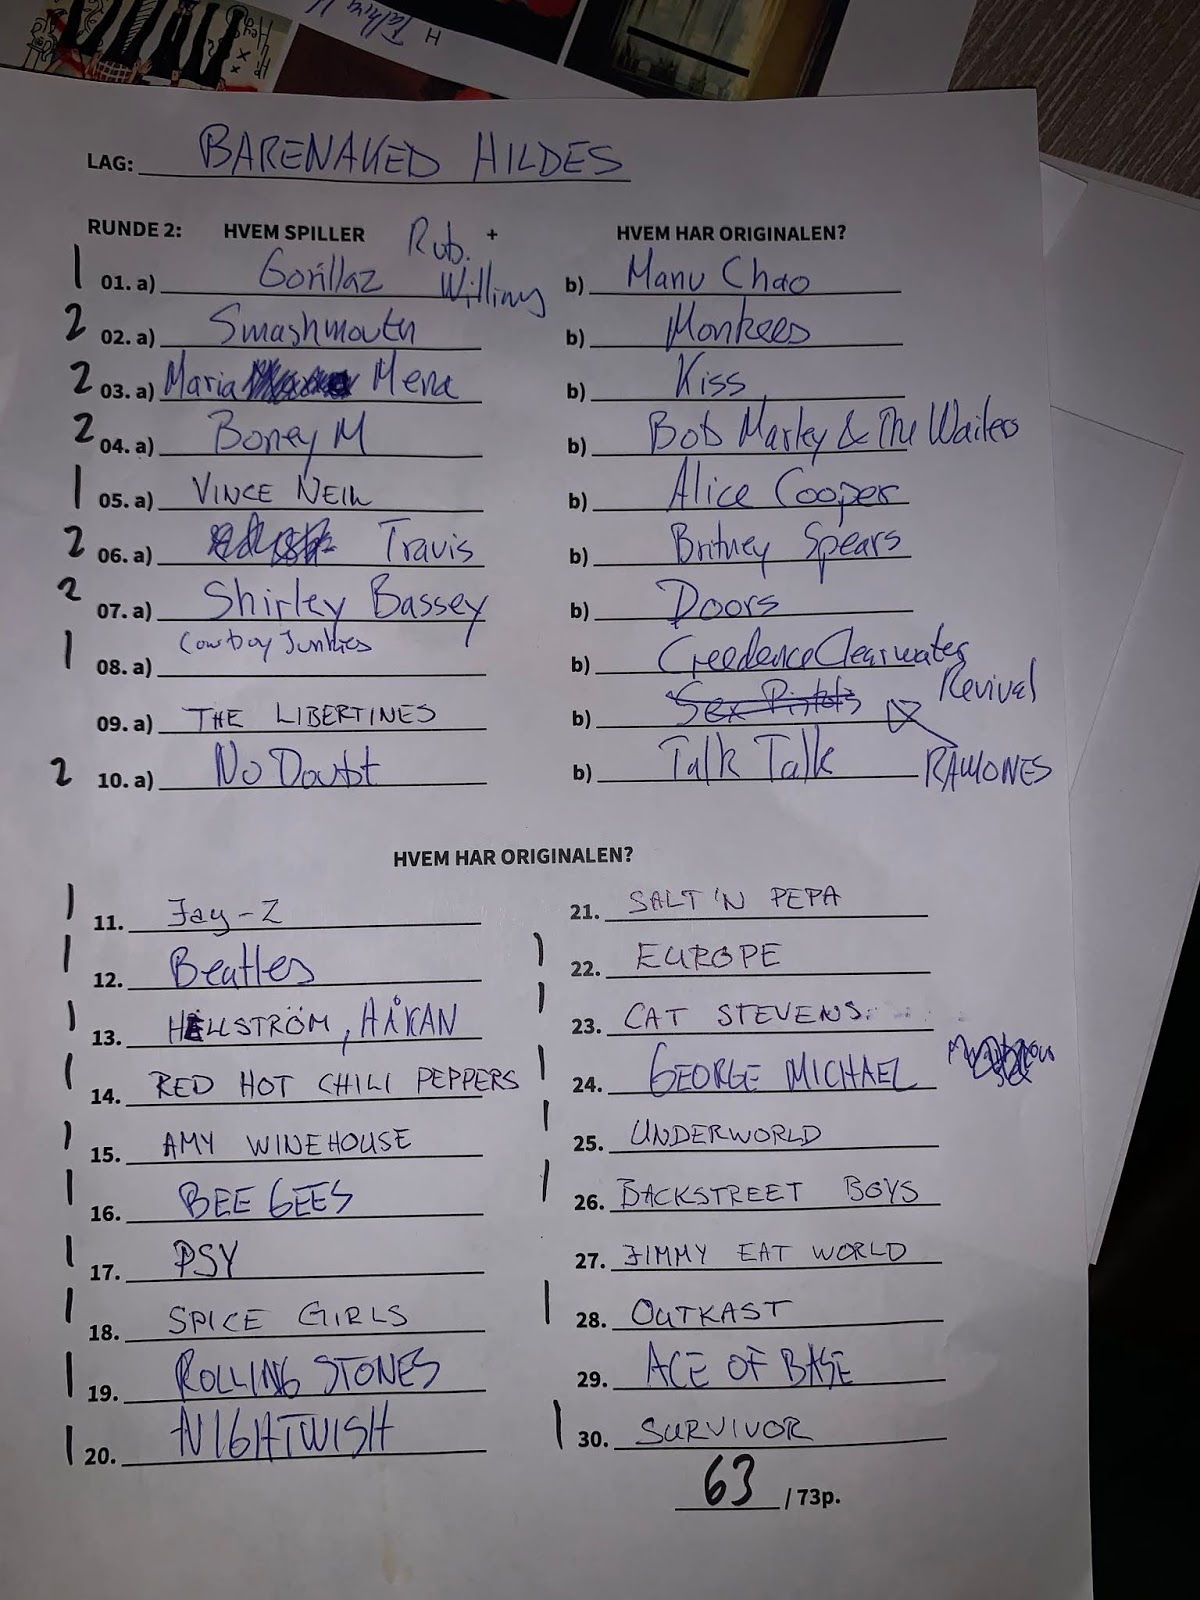 LAG: BARENAKED HILDES
RUNDE 2: HVEM SPILLER Rob. + HVEM HAR ORIGINALEN?
1 01. a) Gorillaz Williams b) Manu Chao
2 02. a) Smashmouth b) Monkees
2 03. a) Maria Mena b) Kiss
2 04. a) Boney M b) Bob Marley & The Wailers
1 05. a) VINCE NEIL b) Alice Cooper
2 06. a) Travis b) Britney Spears
2 07. a) Shirley Bassey b) Doors
1 08. a) Cowboy Junkies b) Creedence Clearwater Revival
09. a) THE LIBERTINES b) Sex Pistols RAMONES
2 10. a) No Doubt b) Talk Talk
HVEM HAR ORIGINALEN?
1 11. Jay-Z
1 12. Beatles
1 13. HELLSTRÖM, HÅKAN
1 14. RED HOT CHILI PEPPERS
1 15. AMY WINEHOUSE
1 16. BEE GEES
1 17. PSY
1 18. SPICE GIRLS
1 19. ROLLING STONES
1 20. NIGHTWISH
21. SALT 'N PEPA
1 22. EUROPE
1 23. CAT STEVENS
1 24. GEORGE MICHAEL
1 25. UNDERWORLD
1 26. BACKSTREET BOYS
27. JIMMY EAT WORLD
1 28. OUTKAST
29. ACE OF BASE
1 30. SURVIVOR
63 / 73p.